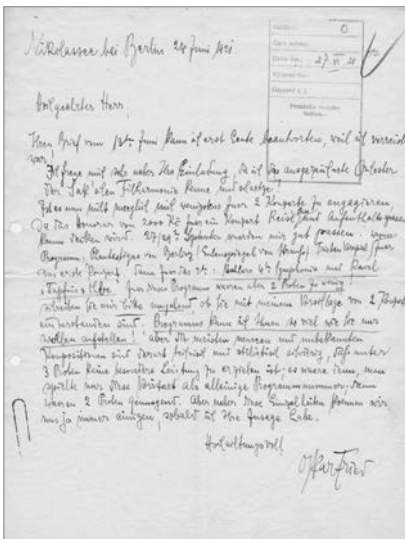 Nikolassee bei Berlin 24 Juni 1921.
0
27 VI 21
Hochgeehrter Herr,
Ihren Brief vom 13ten Juni kann ich erst heute beantworten, weil ich verreist
war!
Ich freue mich sehr ueber Ihre Einladung, da ich das ausgezeichnete Orchester
der Philharmonie kenne und
Ist es nun nicht moeglich mich wenigstens fuer 2 Konzerte zu engagieren
Da das Honorar von 2000 Kč fuer ein Konzert Reise und Aufenthalt
kaum decken wird. 27/29ten September wuerden mir gut passen.
Programm: Phantastique von Berlioz, Eulenspiegel von Strauss, fuer
das erste Konzert. Dann fuer das 2te: Mahlers 4te Symphonie und Ravel
Daphnis & Chloe. fuer diese Programme waeren aber 2 Proben zu wenig
schreiben Sie mir bitte umgehend, ob Sie mit meinem Vorschlage von 2 Konzerten
einverstanden sind. Programme kann ich Ihnen so viel wie Sie nur
wollen aufstellen! aber die meisten neuen und unbekannten
Kompositionen sind derart technisch und schwierig, dass unter
3 Proben keine besondere Leistung zu erzielen ist; es waere denn, man
spielte nur diese als alleinige Programmnummer, dann
waeren 2 Proben genuegend. Aber ueber diese Einzelheiten koennen wir
uns ja immer einigen, sobald ich Ihre Zusage habe.
Hochachtungsvoll
Oskar Fried